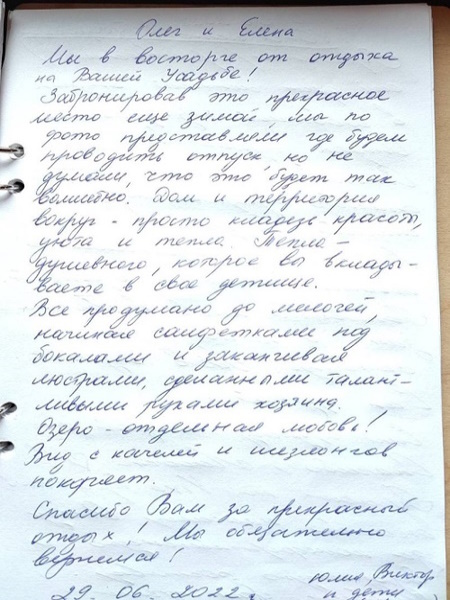 Олег и Елена
Мы в восторге от отдыха
на Вашей Усадьбе!
Забронировав это прекрасное
место еще зимой, мы по
фото представляли, где будем
проводить отпуск, но не
думали, что это будет так
волшебно. Дом и территория
вокруг - просто кладезь красоты,
уюта и тепла. Тепла -
душевного, которое вы вклады-
ваете в свое детище.
Все продумано до мелочей,
начиная салфетками под
бокалами и заканчивая
люстрами, сделанными талант-
ливыми руками хозяина.
Озеро - отдельная любовь!
Вид с качелей и шезлонгов
покоряет.
Спасибо Вам за прекрасный
отдых! Мы обязательно
вернемся!
Юлия, Виктор
и дети
29. 06. 2022г.